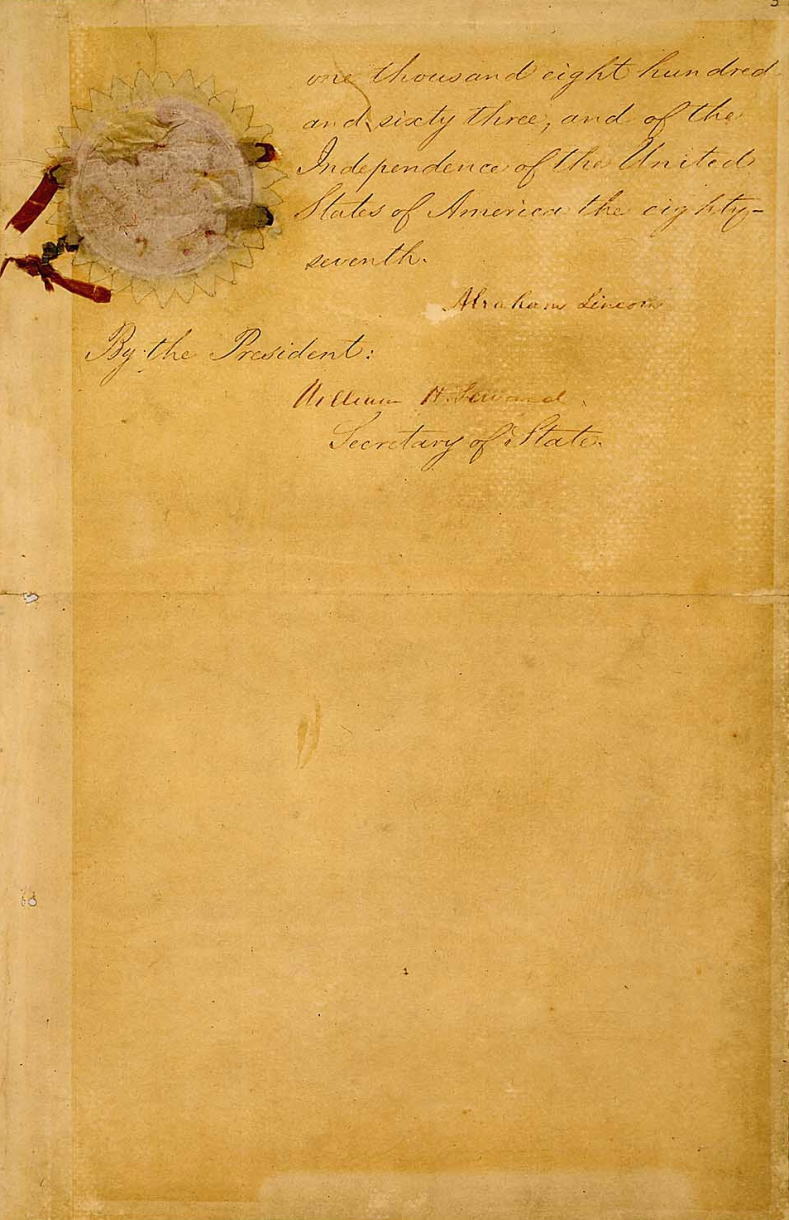 5
one thousand eight hundred
and sixty three, and of the
Independence of the United
States of America the eighty-
seventh.
Abraham Lincoln
By the President:
William H. Seward,
Secretary of State.